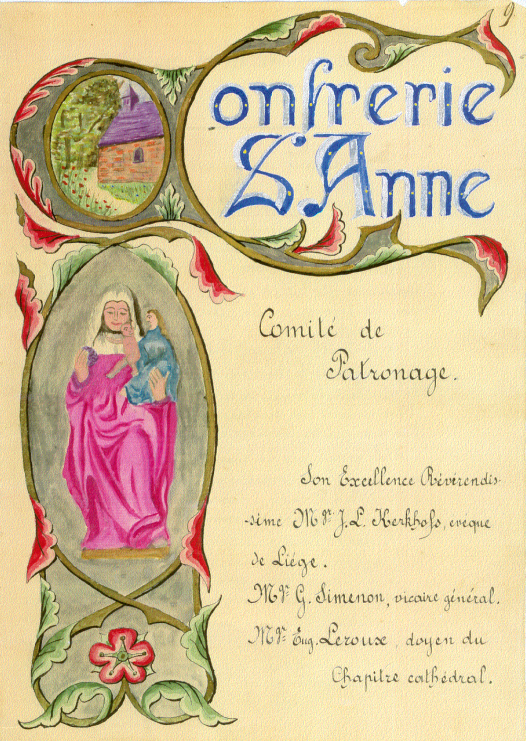 9
Confrerie
S. Anne
Comité de
Patronage.
Son Excellence Révérendis-
-sime Mgr J.L. Kerkhofs, evêque
de Liége.
Mgr G. Simenon, vicaire général.
Mgr Eug. Leroux, doyen du
Chapitre cathédral.